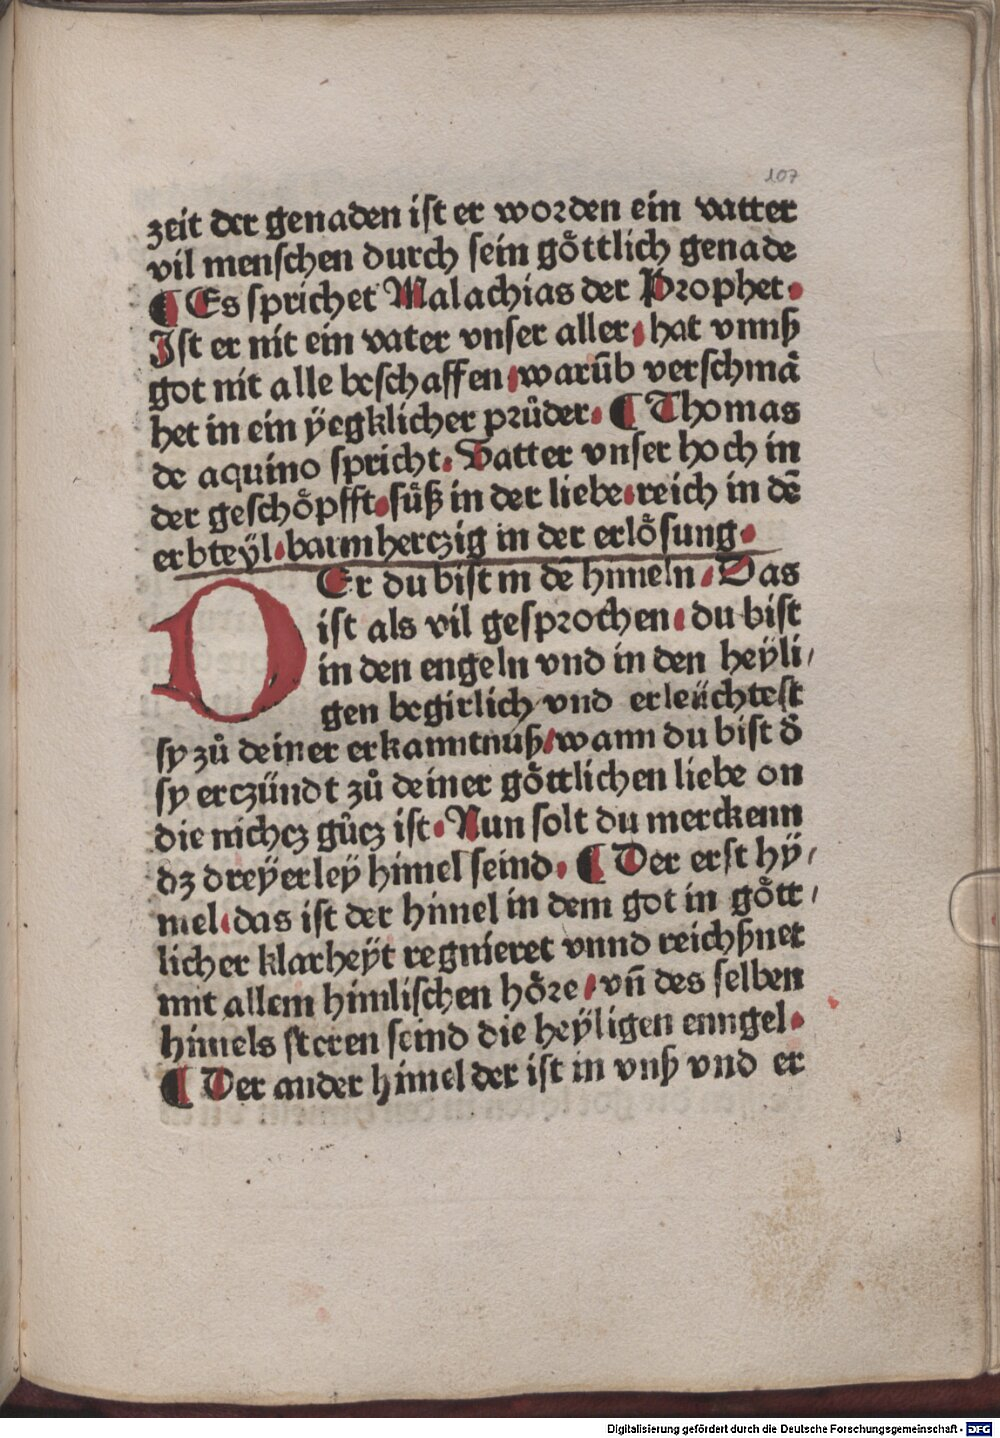 107
zeit der genaden ist er worden ein vatter
vil menschen durch sein gȯttlich genade
¶ Es sprichet Malachias der Prophet.
Ist er nit ein vater vnser aller, hat vnnß
got nit alle beschaffen, warūb verschmå
het in ein ÿegklicher průder. ¶ Thomas
de aquino spricht. Vatter vnser hoch in
der geschöpfft, sůß in der liebe, reich in dē
erbteÿl, barmherczig in der erlösung.
DEr du bist in dē himeln, Das
ist als vil gesprochen, du bist
in den engeln vnd in den heÿli/
gen begirlich vnd erleüchtest
sy zů deiner erkanntnuß, wann du bist d̄
sy erczündt zů deiner göttlichen liebe on
die nichcz gůcz ist. Nun solt du merckenn
dz dreÿerleÿ himel seind. ¶ Der erst hÿ/
mel, das ist der himel in dem got in gött/
licher klarheÿt regnieret vnnd reichßnet
mit allem himlischen höre, vn̄ des selben
himels steren seind die heÿligen enngel.
¶ Der ander himel der ist in vnß vnd er
Digitalisierung gefördert durch die Deutsche Forschungsgemeinschaft - DFG